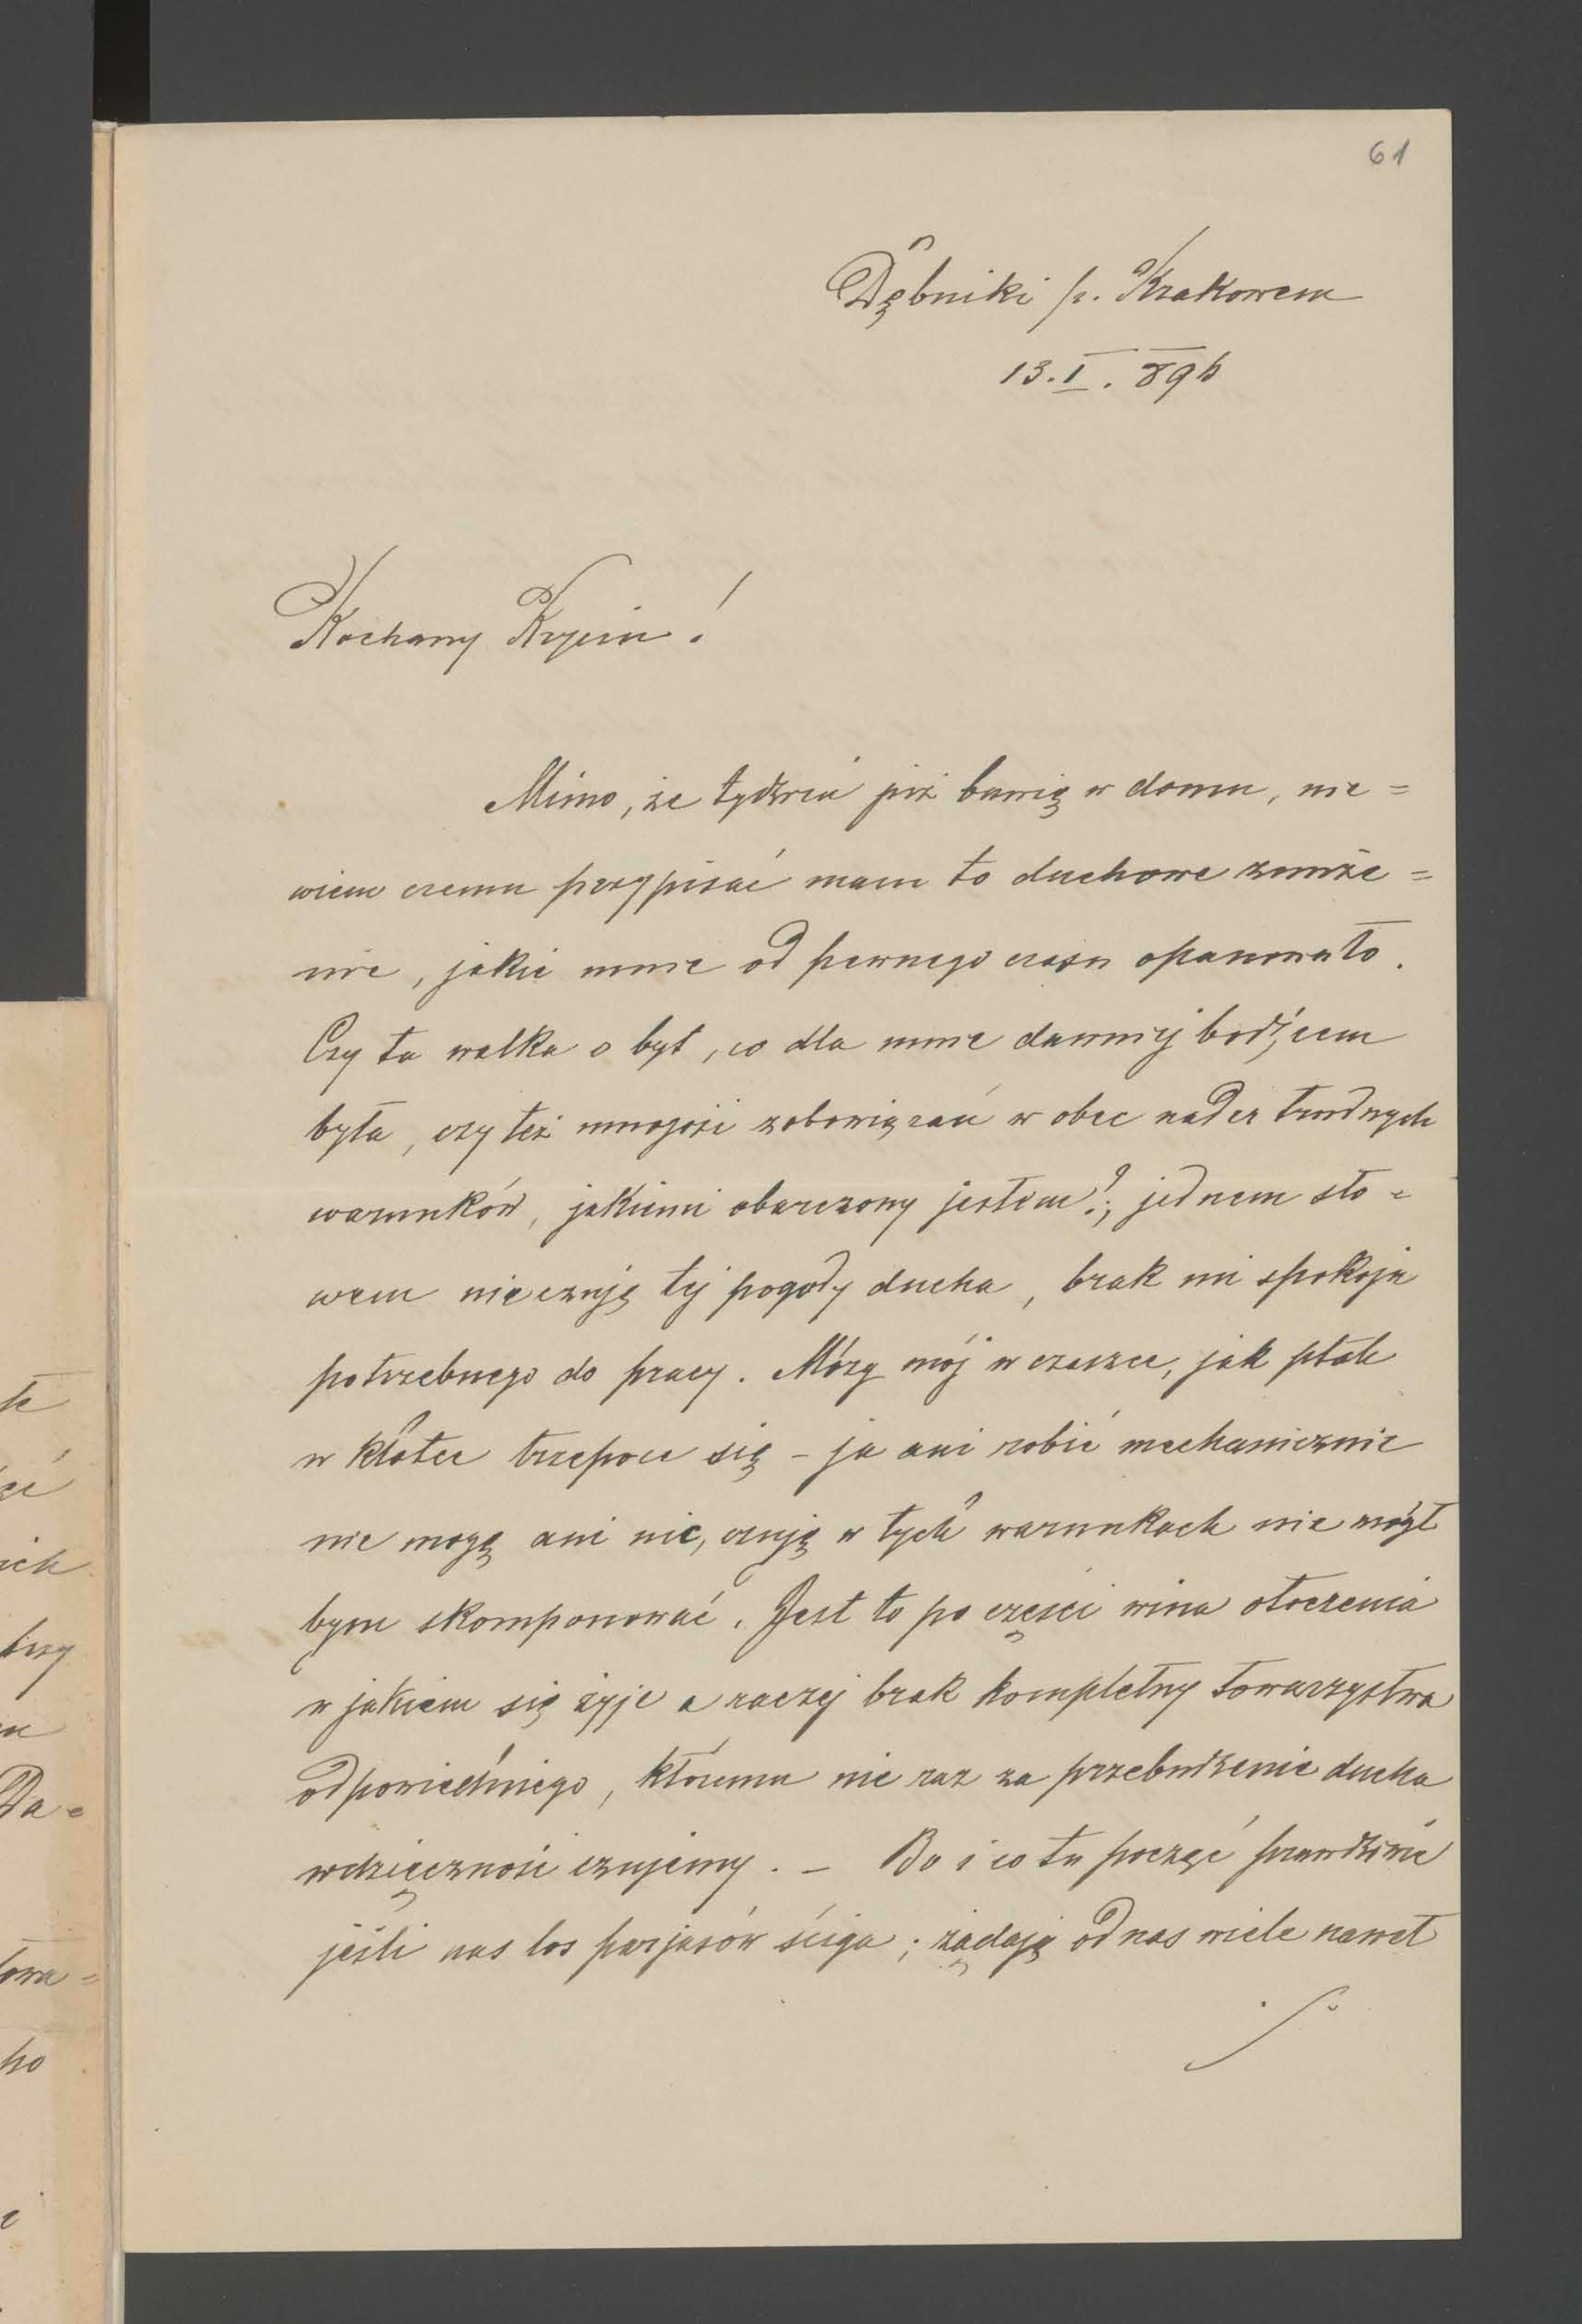 61
Dębniki p. Krakowem
13. I. 896
Kochany Kryciu!
Mimo, że tydzień już bawię w domu, nie=
wiem czemu przypisać mam to duchowe zniże=
nie, jakie mnie od pewnego czasu opanowało.
Czy ta walka o byt, co dla mnie dawniej bodźcem
była, czy też mnogość zobowiązań w obec nader trudnych
warunków, jakiemi obarczony jestem?; jednem sło=
wem nie czuję tej pogody ducha, brak mi spokoju
potrzebnego do pracy. Mózg mój w czaszce, jak ptak
w klatce trzepoce się – ja ani robić mechanicznie
nie mogę ani nic, czuję w tych warunkach nie mógł
bym skomponować. Jest to po części wina otoczenia
w jakiem się żyje a raczej brak kompletny towarzystwa
odpowiedniego, któremu nie raz za przebudzenie ducha
wdzięczność czujemy. – Bo i co tu począć prawdziwie
jeśli nas los parjasów ściga; żądają od nas wiele nawet
te
ich
Da=
towa=
ko